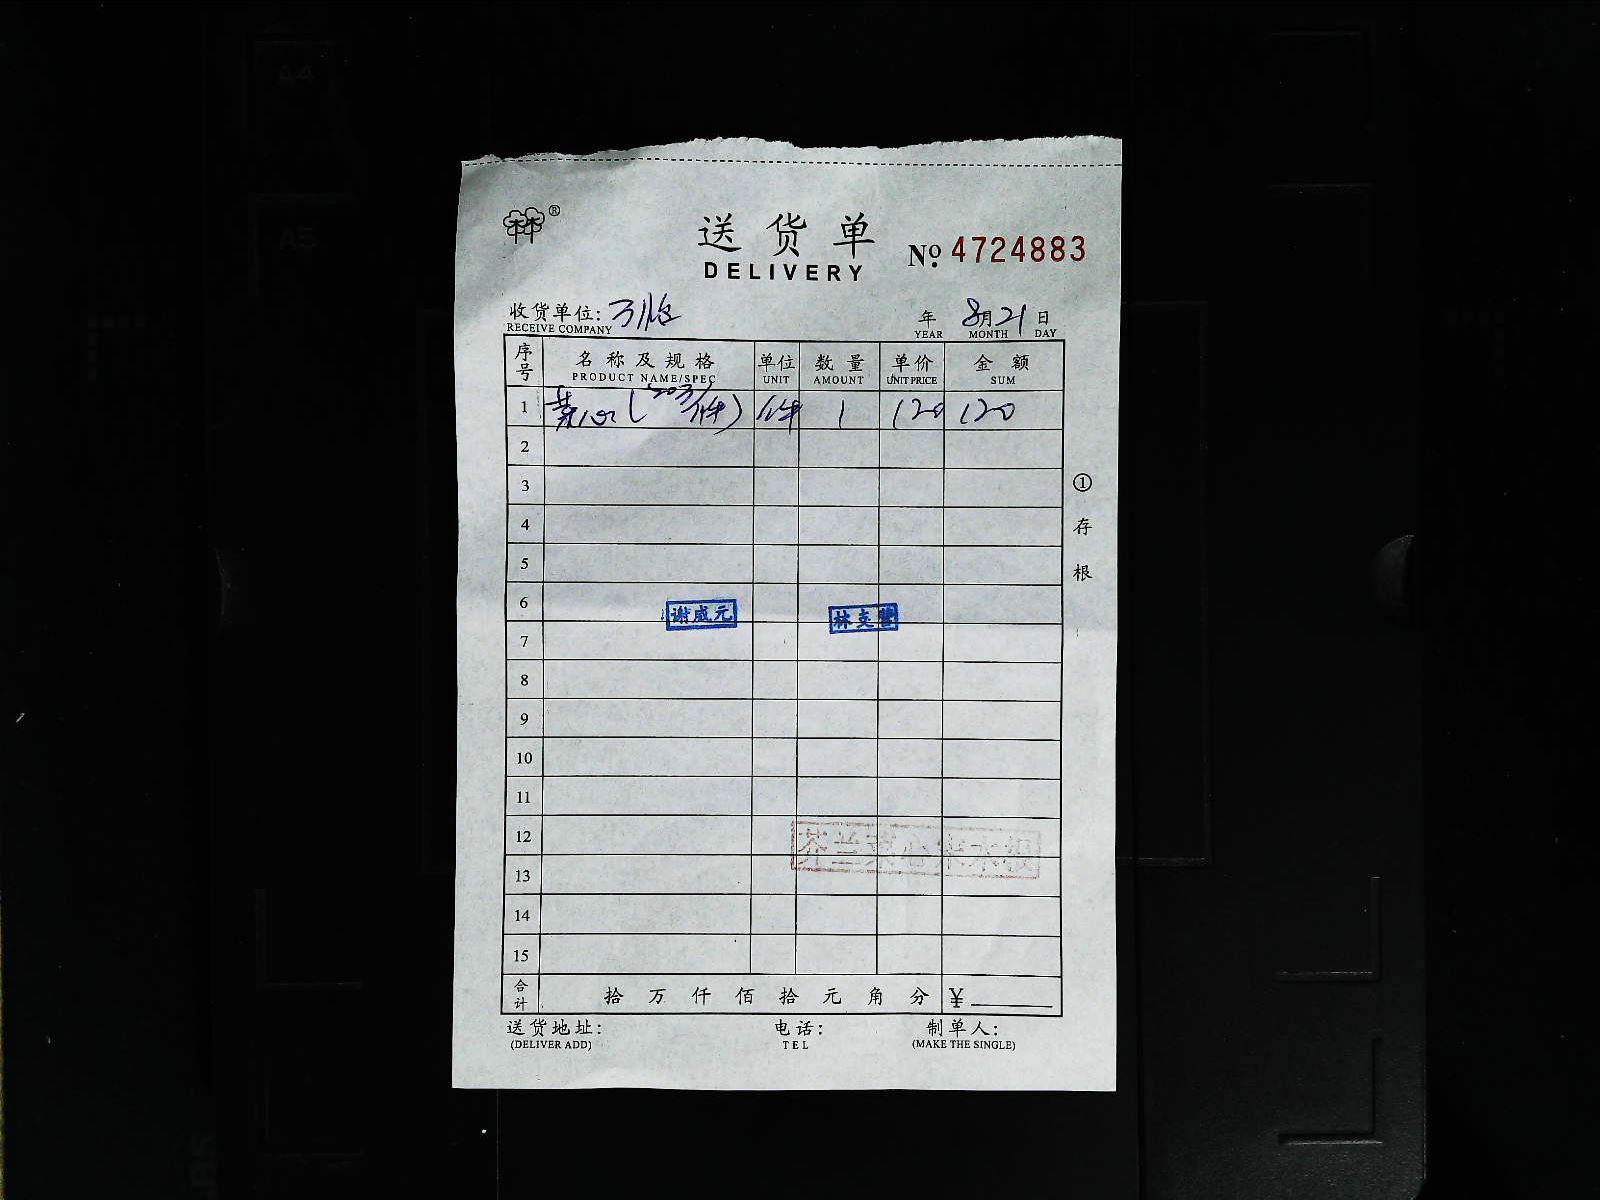 A4
A5
林®
送货单
DELIVERY
№ 4724883
收货单位:
RECEIVE COMPANY
年 8月21日
YEAR MONTH DAY
序号 名称及规格 单位 数量 单价 金额
PRODUCT NAME/SPEC UNIT AMOUNT UNIT PRICE SUM
1 菜心(20斤/件) 件 1 120 120
2
3
① 存根
4
5
6
谢成元 林支
7
8
9
10
11
12
13
14
15
合计 拾 万 仟 佰 拾 元 角 分 ¥
送货地址: 电话: 制单人:
(DELIVER ADD) TEL (MAKE THE SINGLE)